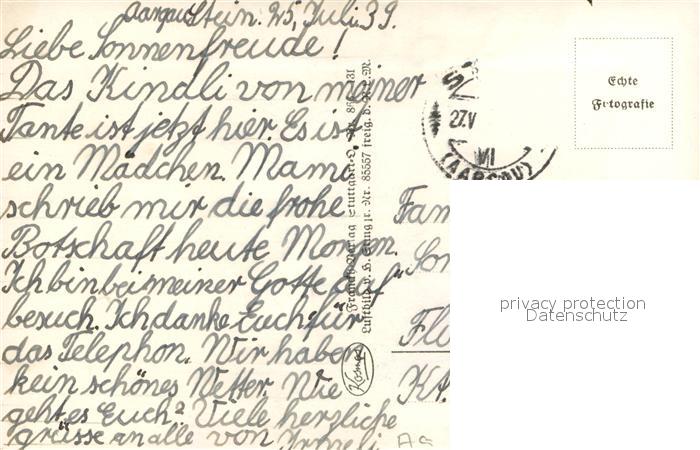 Aargau Stein. 25, Juli. 39.
Liebe Sonnenfreude!
Das Kindli von meiner
Tante ist jetzt hier. Es ist
ein Mädchen. Mama
schrieb mir die frohe
Botschaft heute Morgen.
Ich bin bei meiner Gotte auf
besuch. Ich danke Euch für
das Telephon. Wir haben
kein schönes Wetter. Wie
geht es Euch? Viele herzliche
grüsse an alle von Irmeli
Franckh-Verlag Stuttgart-O.
Luftbild v. H. Nr. 85557 freig. d. R.L.M.
Kosmos
27.V
VII
(AARGAU)
Echte
Fotografie
Fam
Son
Flu
Kt.
Aa
privacy protection
Datenschutz